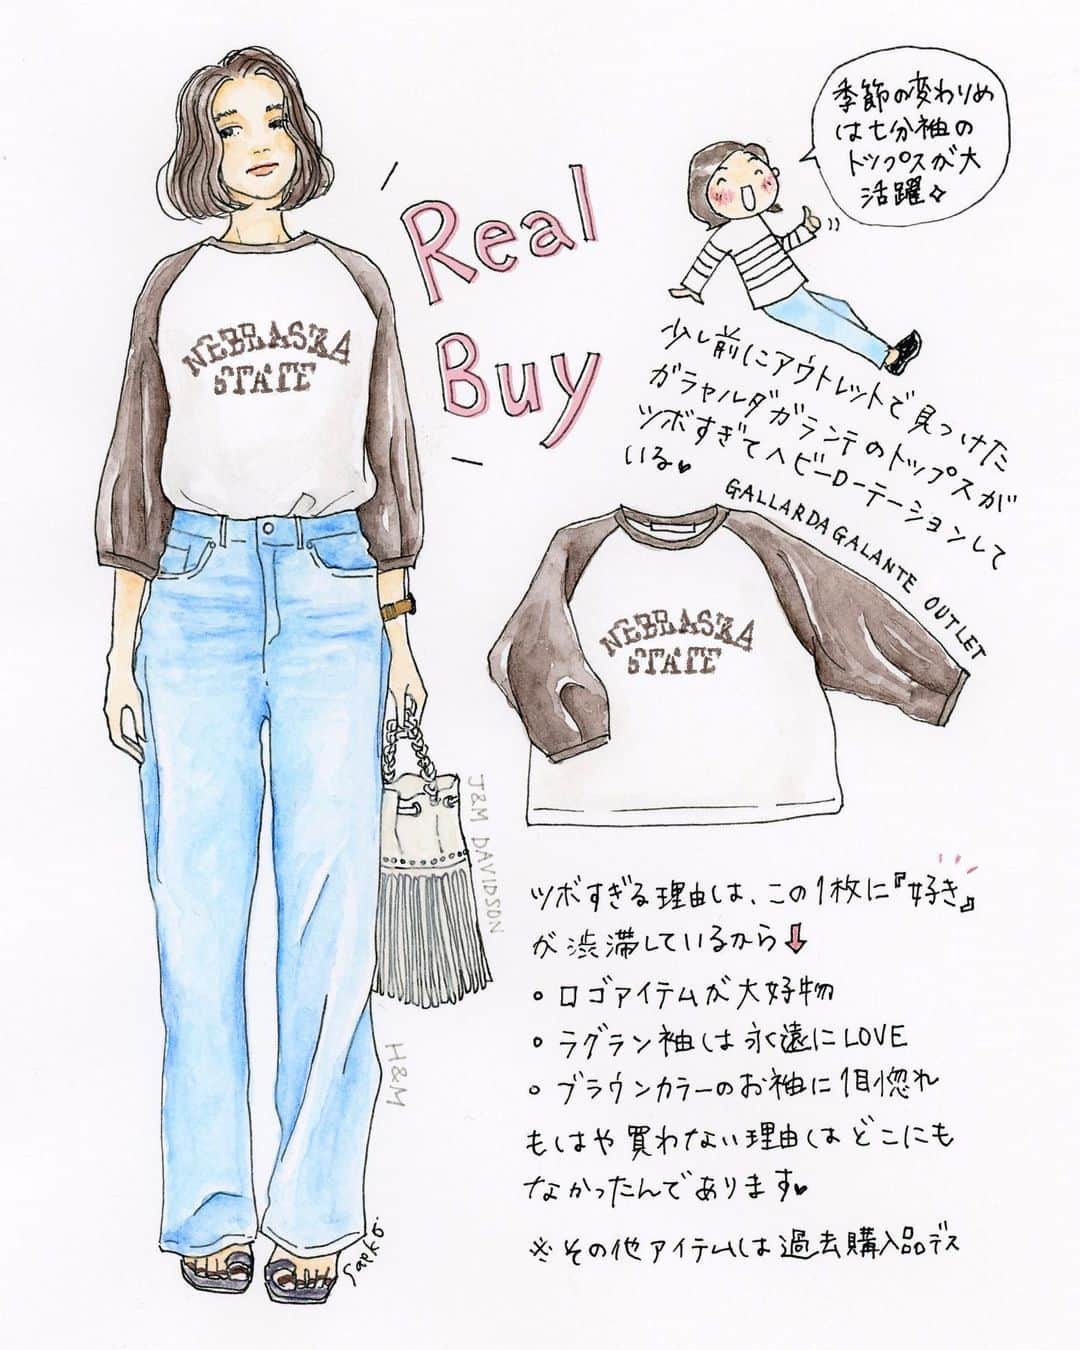 季節の変わりめ
は七分袖の
トップスが大
活躍
Real
Buy
NEBRASKA
STATE
少し前にアウトレットで見つけた
ガラャルダガランテのトップスが
ツボすぎてヘビーローテーションして
いる
GALLARDAGALANTE OUTLET
NEBRASKA
STATE
J&M DAVIDSON
H&M
ツボすぎる理由は、この1枚に『好き』
が渋滞しているから↓
○ロゴアイテムが大好物
○ラグラン袖は永遠にLOVE
○ブラウンカラーのお袖に1目惚れ
もはや買わない理由はどこにも
なかったんであります
※その他アイテムは過去購入品デス